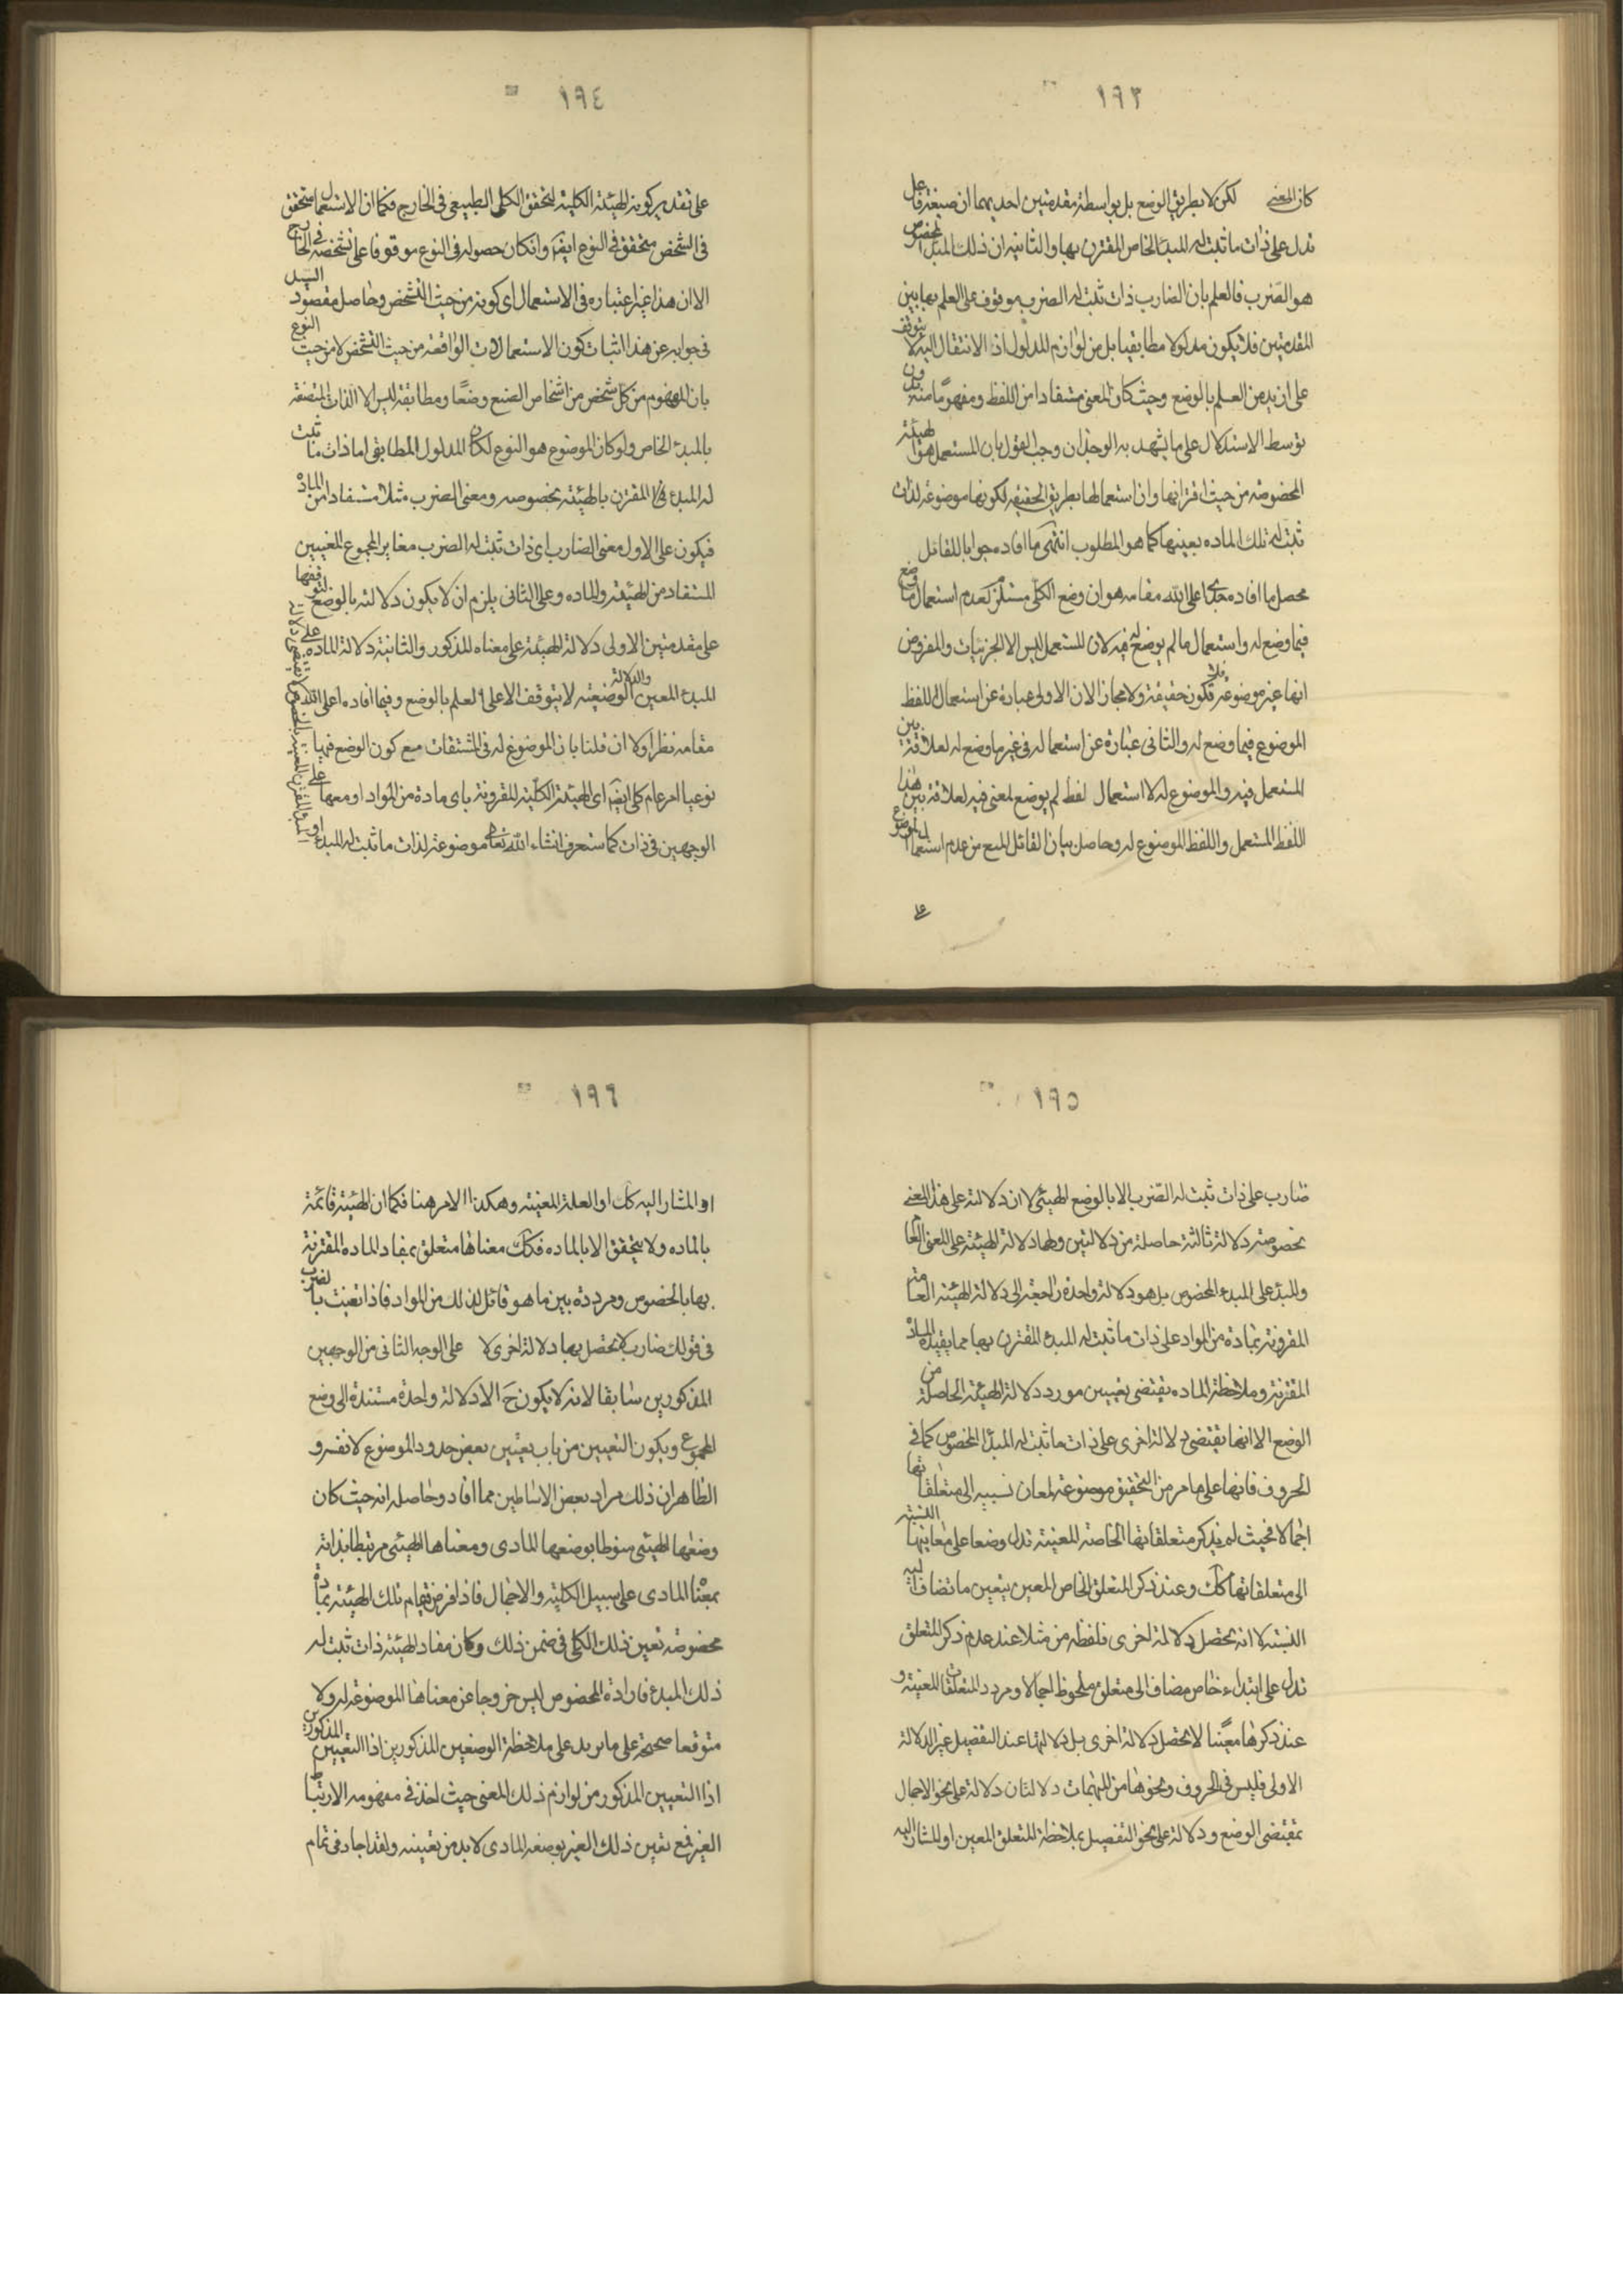 ١٩٣
كان المعنى لكن لا بطريق الوضع بل بواسطة مقدمتين احديهما ان صيغة فاعل
تدل على ذات ما ثبت له المبدء الخاص المقترن بها والثانية ان ذلك المبدء المخصوص
هو الضرب فالعلم بان الضارب ذات ثبت له الضرب موقوف على العلم بهاتين
المقدمتين فلا يكون مدلولا مطابقيا بل من لوازم المدلول اذ الانتقال اليه لا يتوقف
على ازيد من العلم بالوضع وحيث كان المعنى مستفادا من اللفظ ومفهوما منه بدون
توسط الاستدلال على ما يشهد به الوجدان وجب القول بان المستعمل هو الهيئة
المخصوصة من حيث اقترانها وان استعمالها بطريق الحقيقة لكونها موضوعة لذات
ثبت له تلك الماده بعينها كما هو المطلوب انتهى ما افاده جوابا للقائل
محصل ما افاده اعلى الله مقامه هو ان وضع الكلى مستلزم لعدم استعمال ما وضع
فيما وضع له واستعمال ما لم يوضع له فيه لان المستعمل ليس الا الجزئيات والمفروض
انها غير موضوعة فلا تكون حقيقة ولا مجازا لان الاولى عبارة عن استعمال اللفظ
الموضوع فيما وضع له والثانى عبارة عن استعماله فى غير ما وضع له لعلاقة بين
المستعمل فيه والموضوع له لا استعمال لفظ لم يوضع لمعنى فيه لعلاقة بين هذا
اللفظ المستعمل واللفظ الموضوع له وحاصل بيان القائل المنع من عدم استعمال الموضوع
على
١٩٤
على تقدير كونه الهيئة الكلية لتحقق الكلى الطبيعى فى الخارج فكما ان الاستعمال متحقق
فى الشخص متحقق فى النوع ايضا وان كان حصوله فى النوع موقوفا على تشخصه فى الخارج
الا ان هذا غير اعتباره فى الاستعمال اى كونه من حيث التشخص وحاصل مقصود السيد
فى جوابه عن هذا اثبات كون الاستعمالات الواقعة من حيث التشخص لا من حيث النوع
بان المفهوم من كل شخص من اشخاص الصنع وضعا ومطابقة ليس الا الذات المتصفة
بالمبدء الخاص ولو كان الموضوع هو النوع لكان المدلول المطابقى اما ذات ما ثبت
له المبدء المقترن بالهيئة بخصوصه ومعنى الضرب مثلا مستفادا من الماده
فيكون على الاول معنى الضارب اى ذات ثبت له الضرب مغايرا لمجموع المعنيين
المستفاد من الهيئة والماده وعلى الثانى يلزم ان لا يكون دلالته بالوضع لتوقفها
على مقدمتين الاولى دلالة الهيئة على معناه المذكور والثانية دلالة الماده على
المبدء المعين والدلالة الوضعية لا يتوقف الا على العلم بالوضع وفيما افاده اعلى الله
مقامه نظر اولا ان قلنا بان الموضوع له فى المشتقات مع كون الوضع فيها
نوعيا امر عام كلى ايضا اى الهيئة الكلية المقرونة باى مادة من المواد او معها على
الوجهين فى ذات كما ستعرف انشاء الله تعالى موضوعة لذات ما ثبت له المبدء
١٩٥
ضارب على ذات ثبت له الضرب الا بالوضع الهيئى لا ان دلالته على هذا المعنى
بخصوصه دلالة ثالثة حاصلة من دلالتين ولها دلالة الهيئة على المعنى العام
والمبدء على المبدء المخصوص بل هو دلالة واحدة راجعة الى دلالة الهيئة العامة
المقرونة بمادة من المواد على ذات ما ثبت له المبدء المقترن بها مما يفيده المادة
المقترنة وملاحظة الماده يقتضى تعيين مورد دلالة الهيئة الحاصلة من
الوضع الا انها تقتضى دلالة اخرى على ذات ما ثبت له المبدء المخصوص كما فى
الحروف فانها على ما مر من التحقيق موضوعة لمعان نسبيه الى متعلقاتها
اجمالا فحيث لم يذكر متعلقاتها الخاصة المعينة تدل وضعا على معانيها النسبية
الى متعلقاتها كك وعند ذكر المتعلق الخاص المعين يتعين ما تضاف اليه
النسبة لا انه يحصل دلالة اخرى فلفظة من مثلا عند عدم ذكر المتعلق
تدل على ابتداء خاص مضاف الى متعلق ملحوظ اجمالا ومردد المتعلقات المعينة و
عند ذكرها معينا لا يحصل دلالة اخرى بل دلالتها عند التفصيل غير الدلالة
الاولى فليس فى الحروف ونحوها من المبهمات دلالتان دلالة على نحو الاجمال
بمقتضى الوضع ودلالة على نحو التفصيل بملاحظة المتعلق المعين او المشار اليه
١٩٦
او المشار اليه كك او العلة المعينة وهكذا الامر هنا فكما ان الهيئة قائمة
بالماده ولا يتحقق الا بالماده فكك معناها متعلق بمفاد الماده المقترنة
بها بالخصوص ومرددة بين ما هو قائل لذلك من المواد فاذا تعينت بالضرب
فى قولك ضارب لا يحصل بها دلالة اخرى لا على الوجه الثانى من الوجهين
المذكورين سابقا لانه لا يكون ح الا دلالة واحدة مستندة الى وضع
المجموع ويكون التعيين من باب تعيين بعض حدود الموضوع لا نفسه و
الظاهر ان ذلك مراد بعض الاساطين مما افاد وحاصله انه حيث كان
وضعها الهيئى منوطا بوضعها المادى ومعناها الهيئى مرتبطا بذاته
بمعناه المادى على سبيل الكلية والاجمال فاذا فرض قيام تلك الهيئة بمادة
مخصوصه تعين ذلك الكلى فى ضمن ذلك وكان مفاد الهيئة ذات ثبت له
ذلك المبدء فارادة المخصوص ليس خروجا عن معناها الموضوعة له ولا
متوقعا صحته على ما يريد على ملاحظة الوضعين المذكورين اذا التعيين المذكورين
اذا التعيين المذكور من لوازم ذلك المعنى حيث اخذ فى مفهومه الارتباط
الغير فمع تعين ذلك الغير بوضعه المادى لا بد من تعيينه ولقد اجاد فى تمام